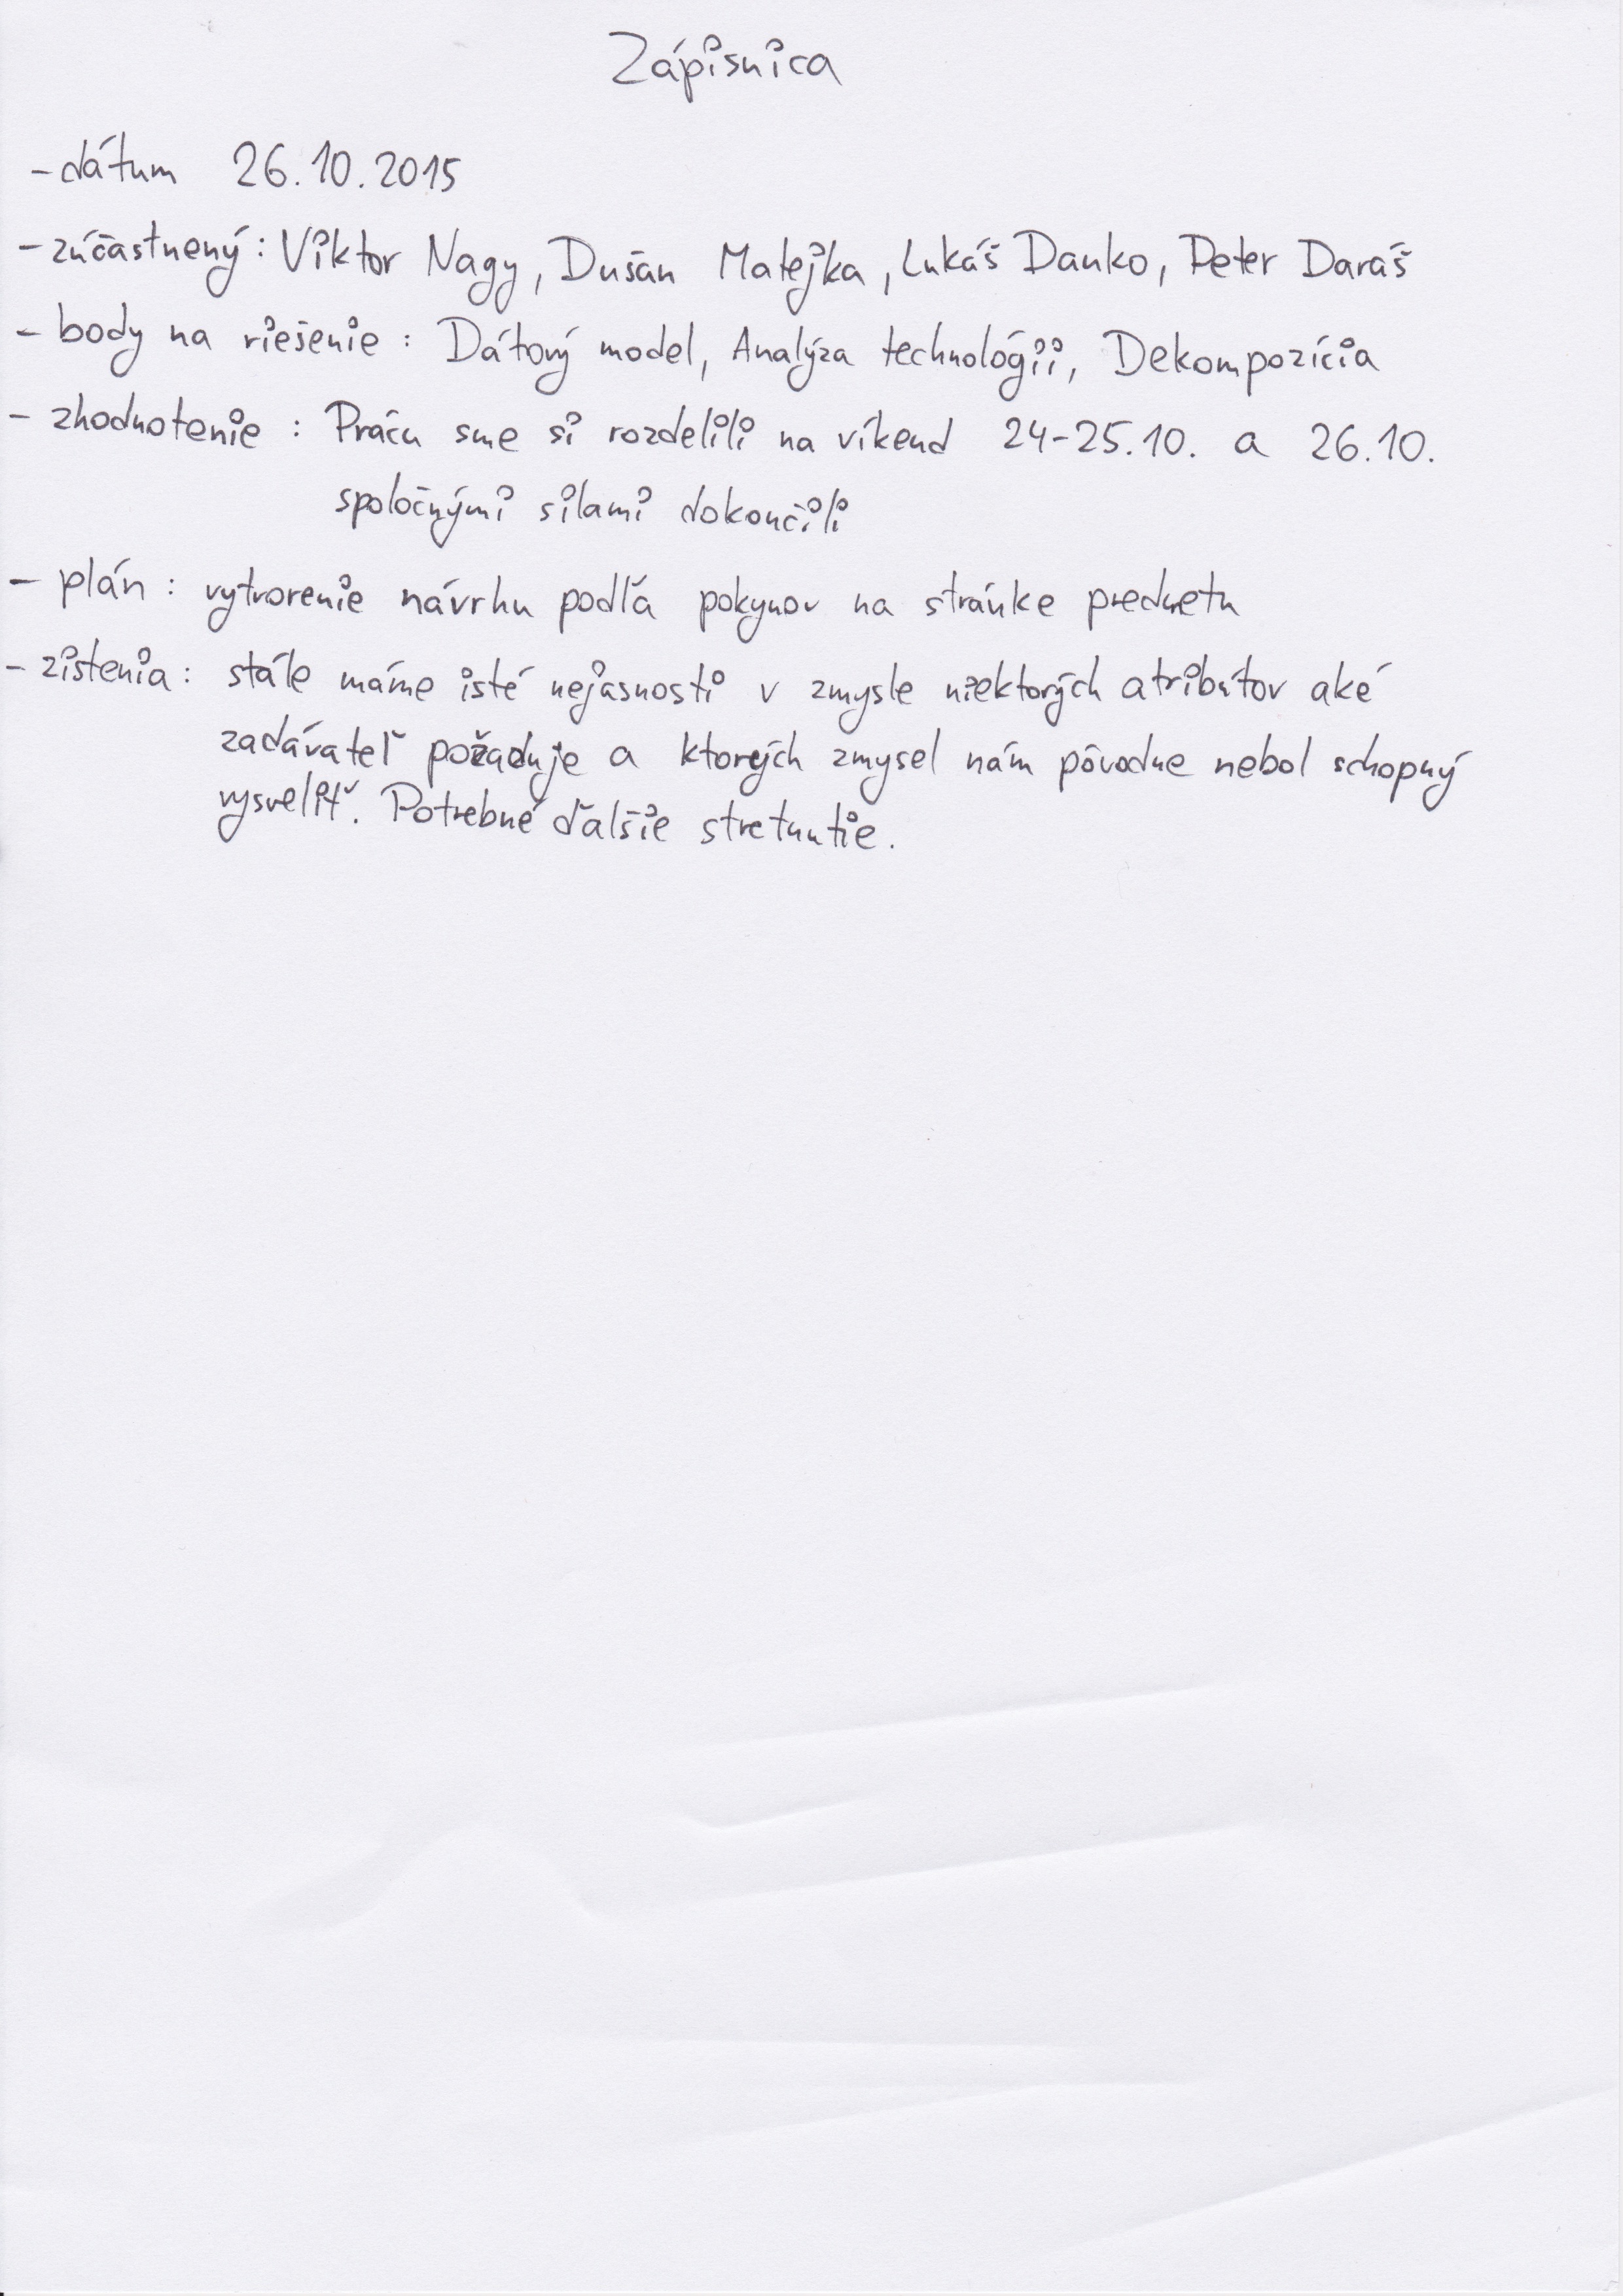 Zápisnica
- dátum 26.10.2015
- zúčastnený: Viktor Nagy, Dušan Matejka, Lukáš Danko, Peter Daráš
- body na riešenie : Dátový model, Analýza technológii, Dekompozícia
- zhodnotenie : Prácu sme si rozdelili na víkend 24-25.10. a 26.10.
spoločnými silami dokončili
- plán : vytvorenie návrhu podľa pokynov na stránke predmetu
- zistenia : stále máme isté nejasnosti v zmysle niektorých atribútov aké
zadávateľ požaduje a ktorých zmysel nám pôvodne nebol schopný
vysveliť. Potrebné ďalšie stretnutie.